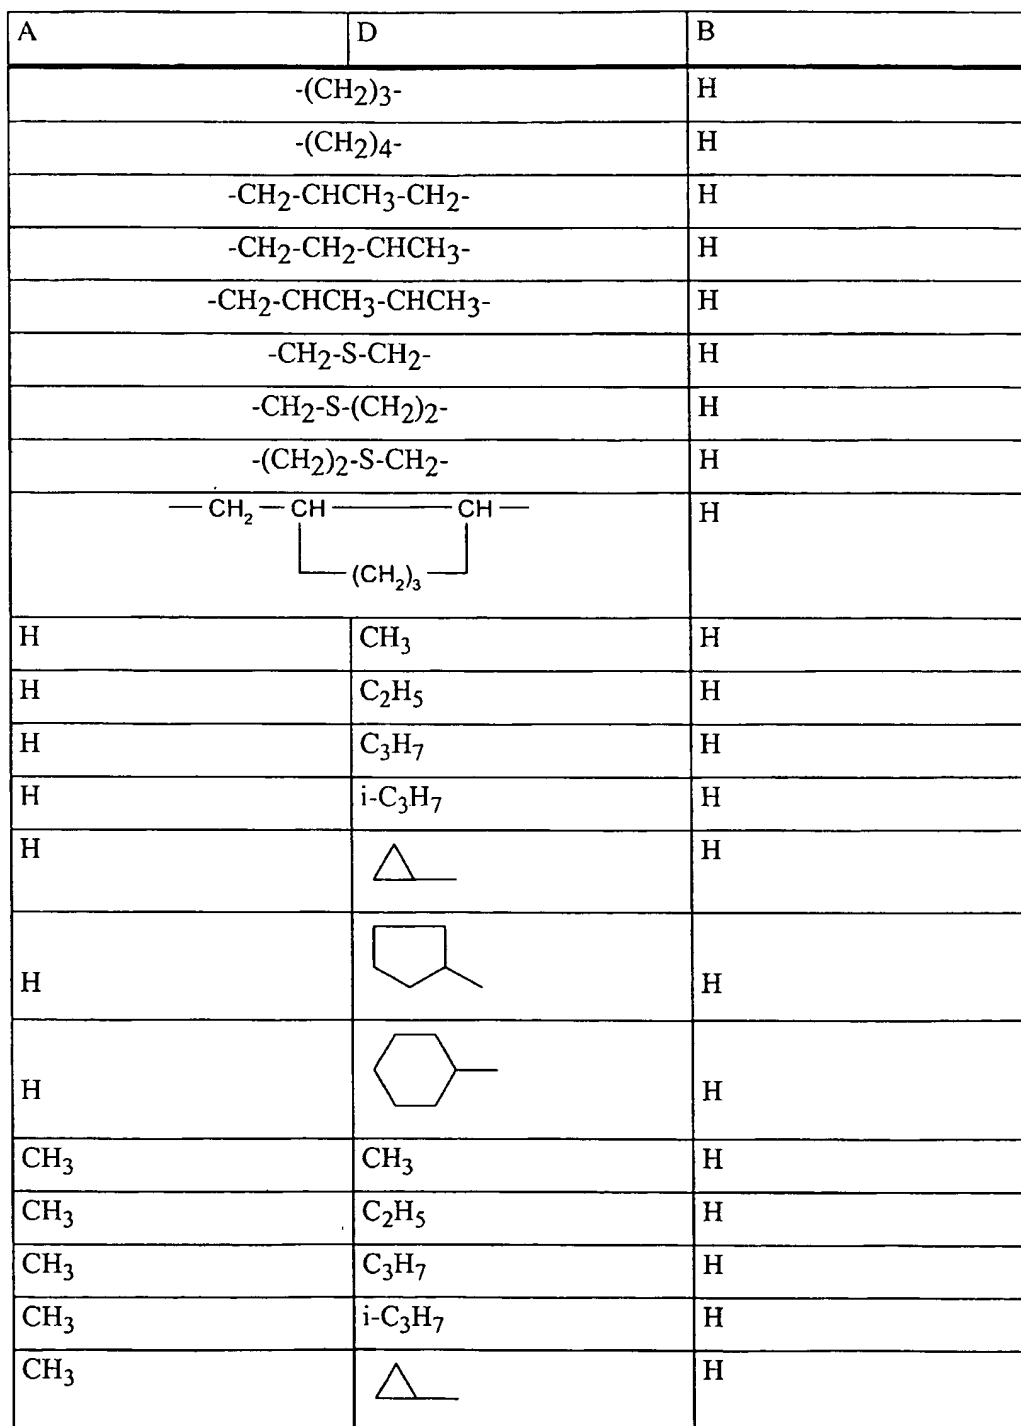 A D B
-(CH2)3- H
-(CH2)4- H
-CH2-CHCH3-CH2- H
-CH2-CH2-CHCH3- H
-CH2-CHCH3-CHCH3- H
-CH2-S-CH2- H
-CH2-S-(CH2)2- H
-(CH2)2-S-CH2- H
— CH2 — CH — CH — H
(CH2)3
H CH3 H
H C2H5 H
H C3H7 H
H i-C3H7 H
H H
H H
H H
CH3 CH3 H
CH3 C2H5 H
CH3 C3H7 H
CH3 i-C3H7 H
CH3 H